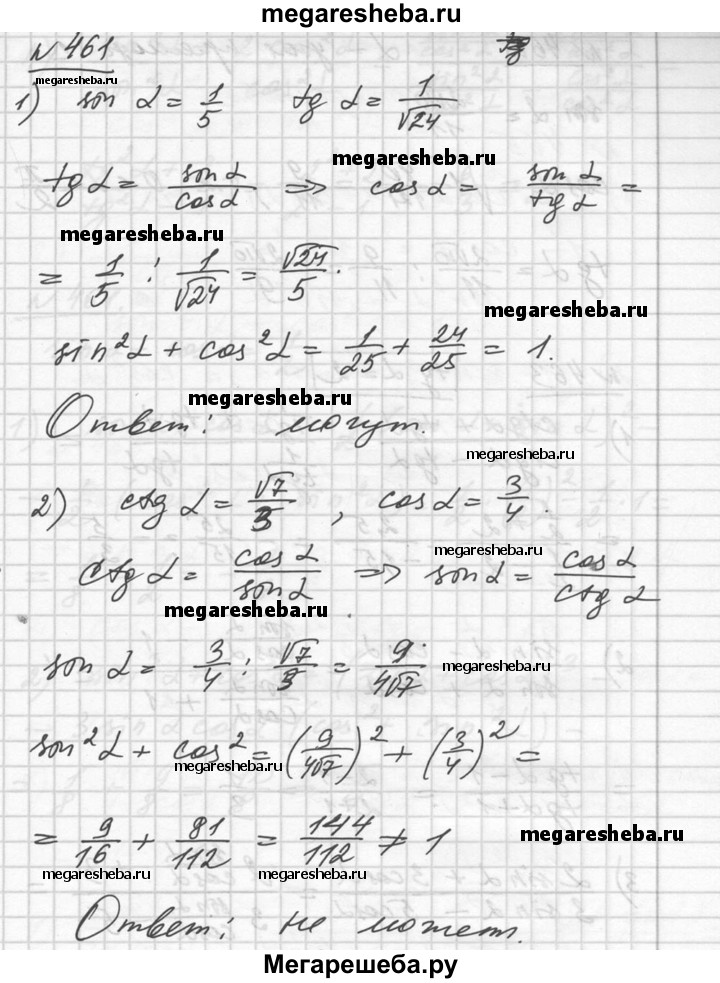 megaresheba.ru
№ 461
megaresheba.ru
1) sin α = 1/5 tg α = 1/√24
megaresheba.ru
tg α = sin α/cos α => cos α = sin α/tg α =
megaresheba.ru
= 1/5 : 1/√24 = √24/5.
megaresheba.ru
sin²α + cos²α = 1/25 + 24/25 = 1.
megaresheba.ru
Ответ: могут.
megaresheba.ru
2) ctg α = √7/3, cos α = 3/4.
megaresheba.ru
ctg α = cos α/sin α => sin α = cos α/ctg α
megaresheba.ru
sin α = 3/4 : √7/3 = 9/4√7
megaresheba.ru
sin²α + cos² = (9/4√7)² + (3/4)² =
megaresheba.ru
= 9/16 + 81/112 = 144/112 ≠ 1
megaresheba.ru
megaresheba.ru megaresheba.ru
Ответ: не может.
Мегарешеба.ру